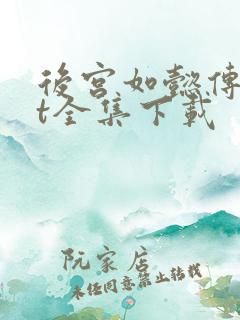 後宮如懿傳
t全集下載
阮家店
未经同意禁止转载